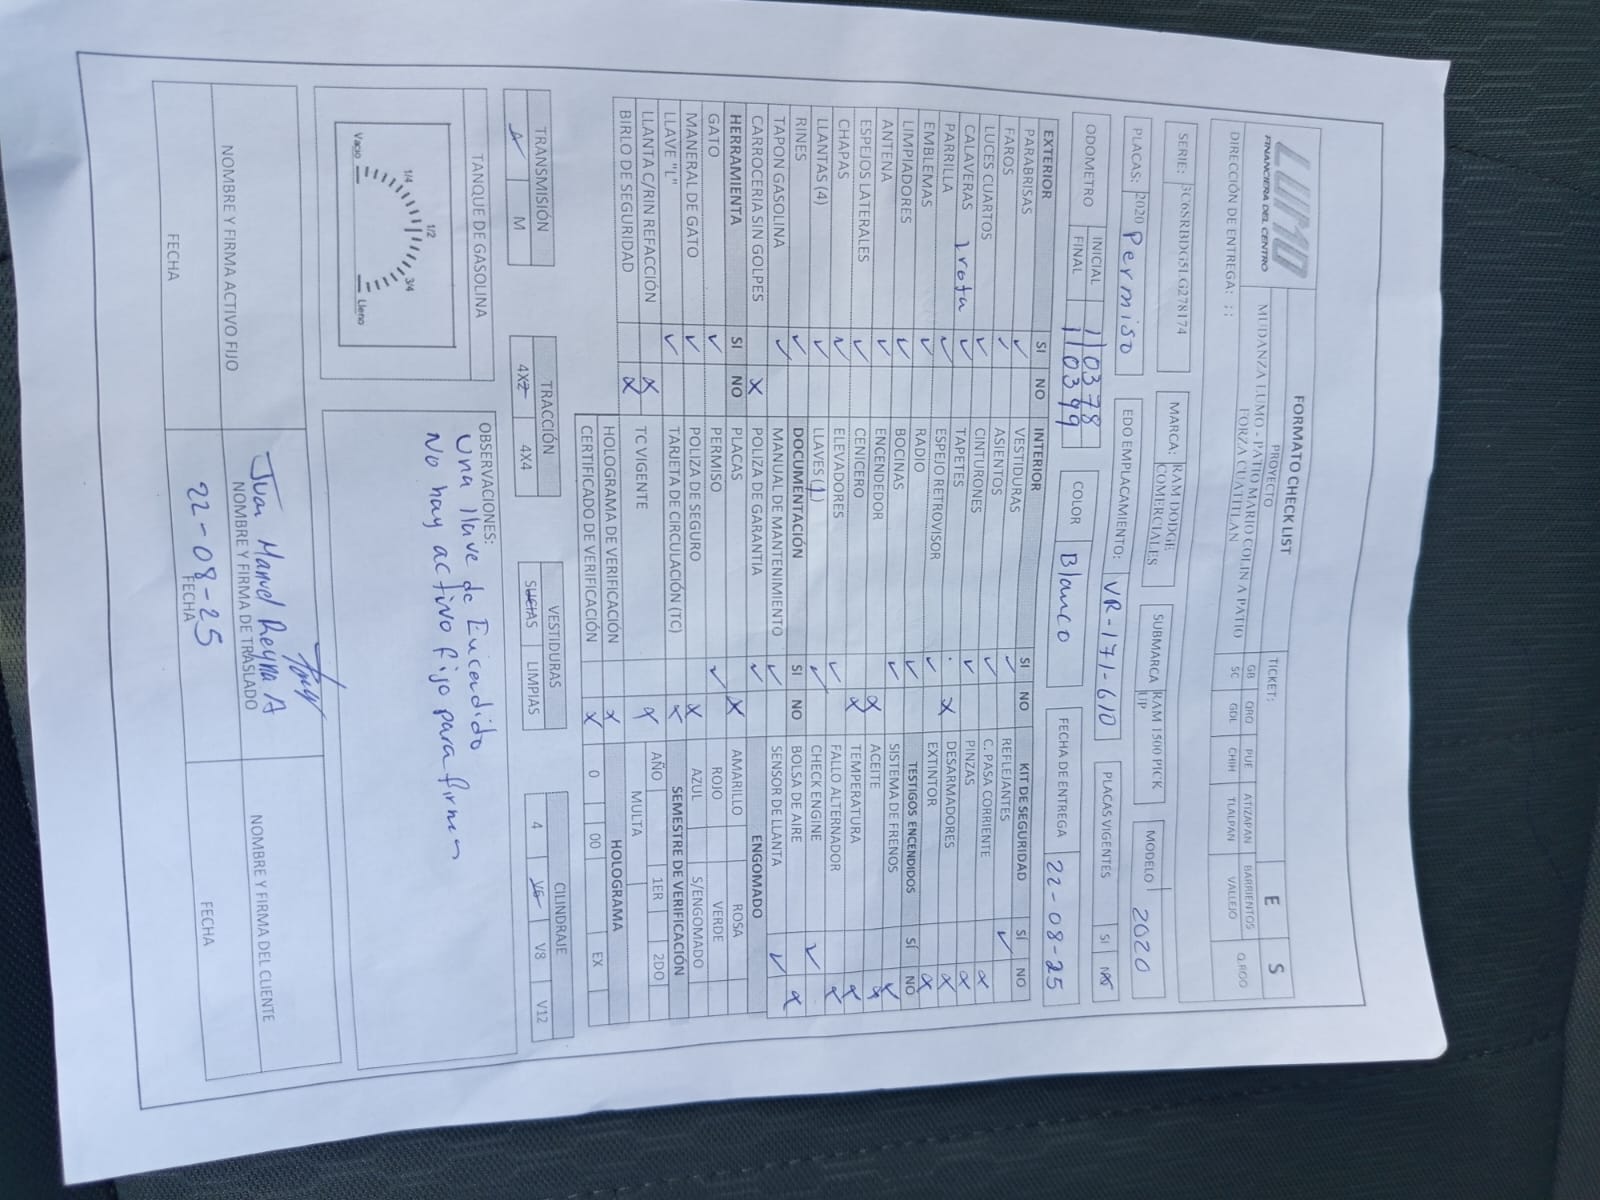 LUMO
FINANCIERA DEL CENTRO
FORMATO CHECK LIST
PROYECTO
MUDANZA LUMO - PATIO MARIO COLIN A PATIO
FORZA CUATITLAN
TICKET:
E S
GB QRO PUE ATIZAPAN BARRIENTOS Q.ROO
SC GDL CHIH TLALPAN VALLEJO
DIRECCIÓN DE ENTREGA: ; ;
SERIE: 3C6SRBDG5LG278174
MARCA: RAM DODGE COMERCIALES
SUBMARCA RAM 1500 PICK UP
MODELO 2020
PLACAS: 2020 Permiso
EDO EMPLACAMIENTO: VR-171-610
PLACAS VIGENTES SI NO
ODOMETRO
INICIAL 110378
FINAL 110399
COLOR Blanco
FECHA DE ENTREGA 22-08-25
EXTERIOR SI NO
PARABRISAS ✓
FAROS ✓
LUCES CUARTOS ✓
CALAVERAS 1 rota ✓
PARRILLA ✓
EMBLEMAS ✓
LIMPIADORES ✓
ANTENA ✓
ESPEJOS LATERALES ✓
CHAPAS ✓
LLANTAS (4) ✓
RINES ✓
TAPON GASOLINA ✓
CARROCERIA SIN GOLPES X
HERRAMIENTA SI NO
GATO ✓
MANERAL DE GATO ✓
LLAVE "L" ✓
LLANTA C/RIN REFACCIÓN X
BIRLO DE SEGURIDAD X
INTERIOR SI NO
VESTIDURAS ✓
ASIENTOS ✓
CINTURONES ✓
TAPETES X
ESPEJO RETROVISOR ✓
RADIO ✓
BOCINAS ✓
ENCENDEDOR X
CENICERO X
ELEVADORES ✓
LLAVES (1) ✓
DOCUMENTACIÓN SI NO
MANUAL DE MANTENIMIENTO ✓
POLIZA DE GARANTIA ✓
PLACAS X
PERMISO ✓
POLIZA DE SEGURO X
TARJETA DE CIRCULACIÓN (TC) X
TC VIGENTE X
HOLOGRAMA DE VERIFICACIÓN X
CERTIFICADO DE VERIFICACIÓN X
KIT DE SEGURIDAD SÍ NO
REFLEJANTES ✓
C. PASA CORRIENTE X
PINZAS X
DESARMADORES X
EXTINTOR X
TESTIGOS ENCENDIDOS SÍ NO
SISTEMA DE FRENOS X
ACEITE X
TEMPERATURA X
FALLO ALTERNADOR X
CHECK ENGINE ✓
BOLSA DE AIRE X
SENSOR DE LLANTA ✓
ENGOMADO
AMARILLO ROSA
ROJO VERDE
AZUL S/ENGOMADO
SEMESTRE DE VERIFICACIÓN
AÑO 1ER 2DO
MULTA
HOLOGRAMA
0 00 EX
TRANSMISIÓN
A M
TRACCIÓN
4X2 4X4
VESTIDURAS
SUCIAS LIMPIAS
CILINDRAJE
4 V6 V8 V12
TANQUE DE GASOLINA
Vacio 1/4 1/2 3/4 Lleno
OBSERVACIONES:
Una llave de Encendido
No hay activo fijo para firmar
NOMBRE Y FIRMA ACTIVO FIJO
FECHA
Juan Manuel Reyna A
NOMBRE Y FIRMA DE TRASLADO
22-08-25
FECHA
NOMBRE Y FIRMA DEL CLIENTE
FECHA